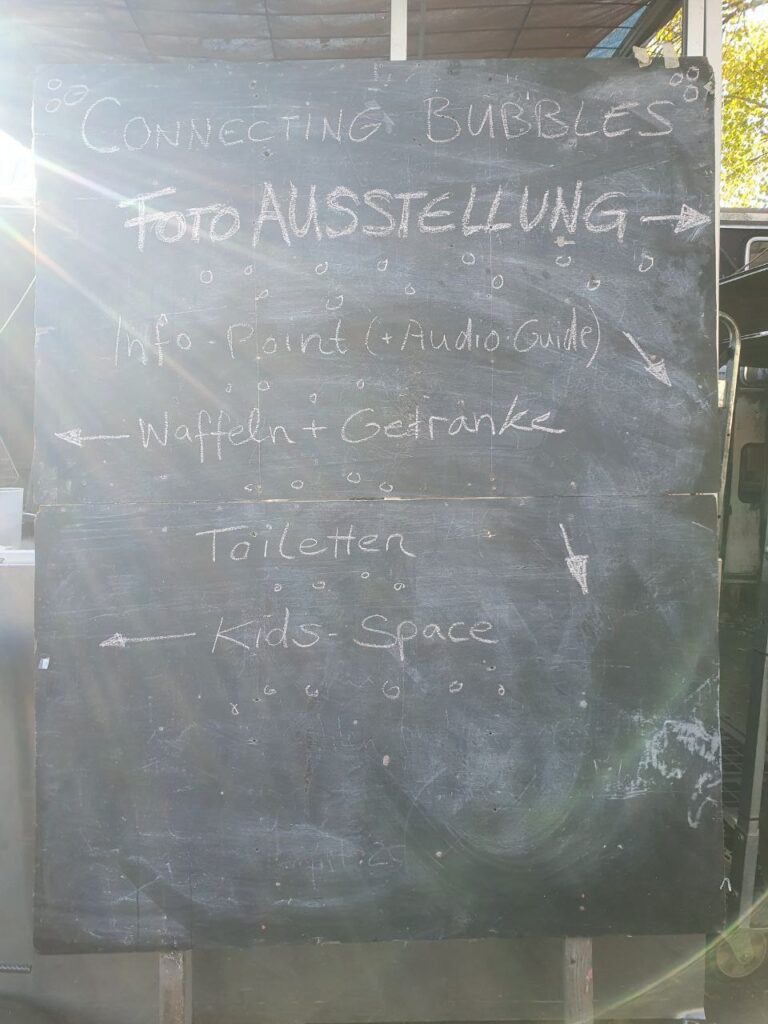 CONNECTING BUBBLES
FOTO AUSSTELLUNG →
Info-Point (+ Audio-Guide) ↘
← Waffeln + Getränke
Toiletten ↓
← Kids-Space